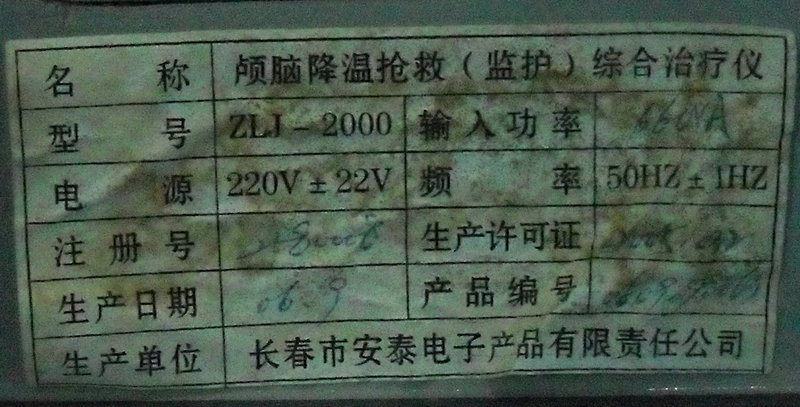 名称 颅脑降温抢救（监护）综合治疗仪
型号 ZLJ-2000 输入功率
电源 220V±22V 频率 50HZ±1HZ
注册号 生产许可证
生产日期 产品编号
生产单位 长春市安泰电子产品有限责任公司